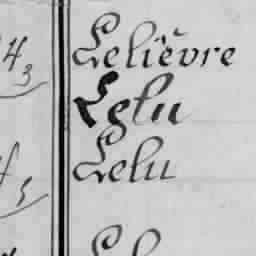 43 Lelièvre
Lelu
5 Lelu